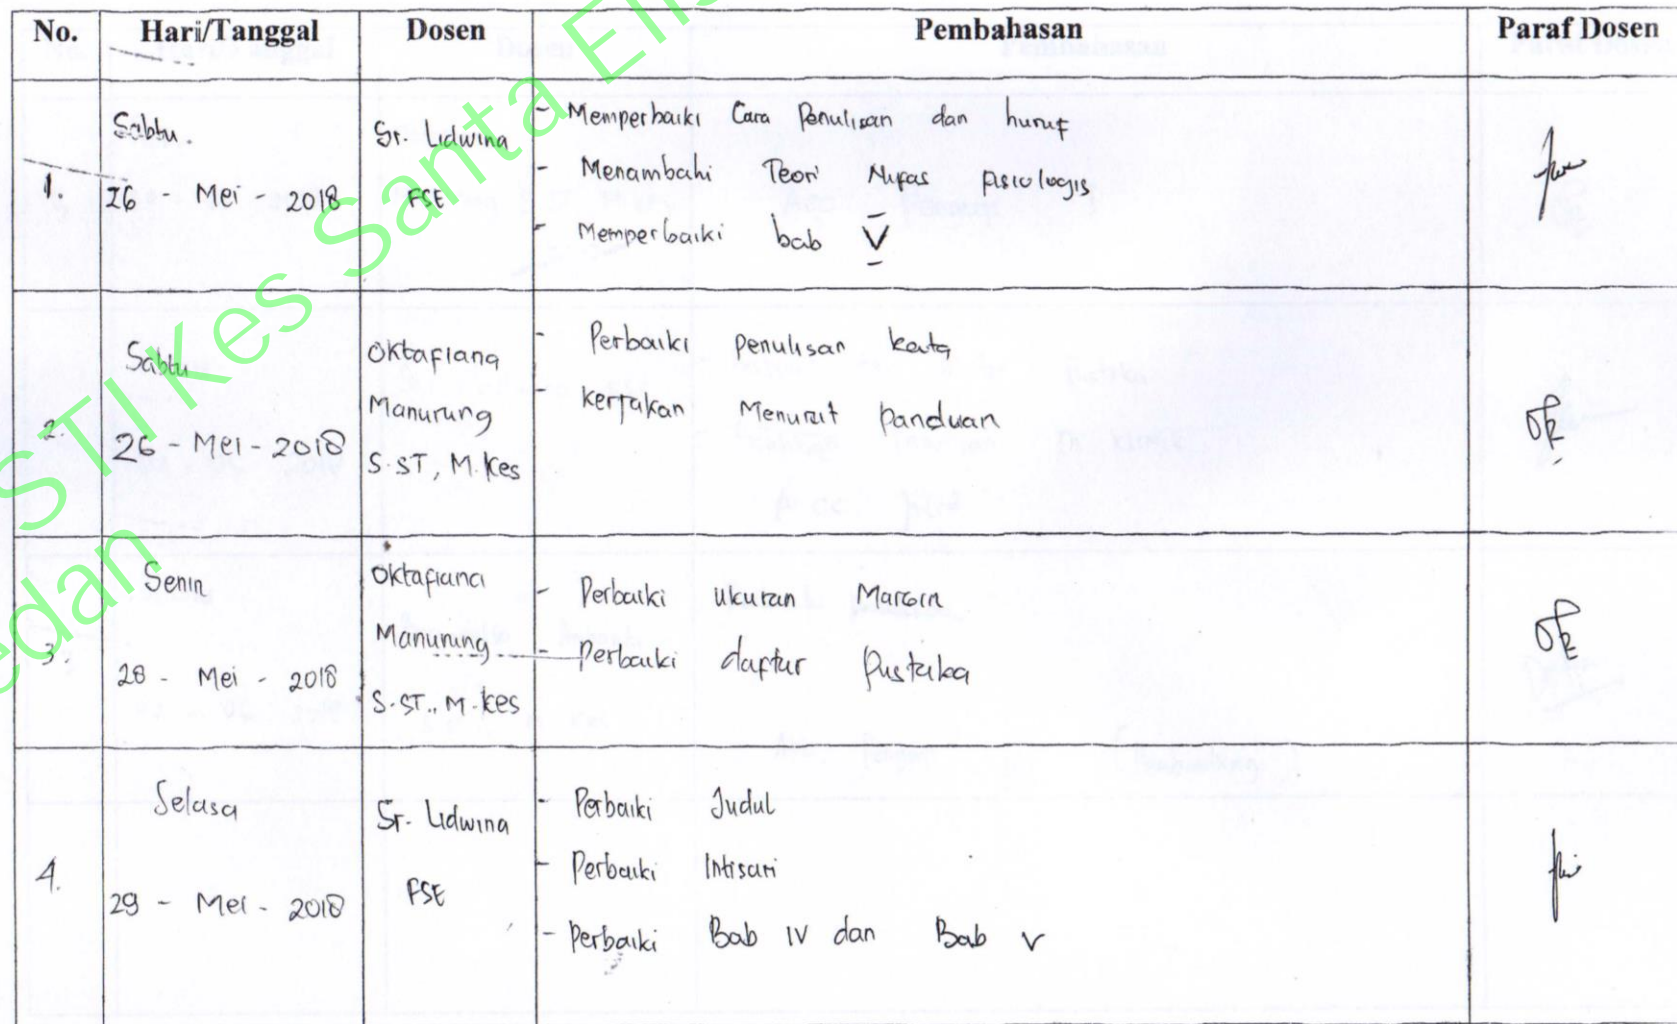 No. Hari/Tanggal Dosen Pembahasan Paraf Dosen
1. Sabtu. 26 - Mei - 2018
Sr. Lidwina
FSE
- Memperbaiki Cara Penulisan dan huruf
- Menambahi Teori Nifas fisiologis
- Memperbaiki bab V
2. Sabtu 26 - Mei - 2018
Oktafiana
Manurung
S.ST, M.Kes
- Perbaiki penulisan kata
- kerjakan Menurut panduan
3. Senin 28 - Mei - 2018
Oktafiana
Manurung
S.ST., M.Kes
- Perbaiki ukuran Margin
- Perbaiki daftar Pustaka
4. Selasa 29 - Mei - 2018
Sr. Lidwina
FSE
- Perbaiki Judul
- Perbaiki Intisari
- Perbaiki Bab IV dan Bab V
STIKes Santa